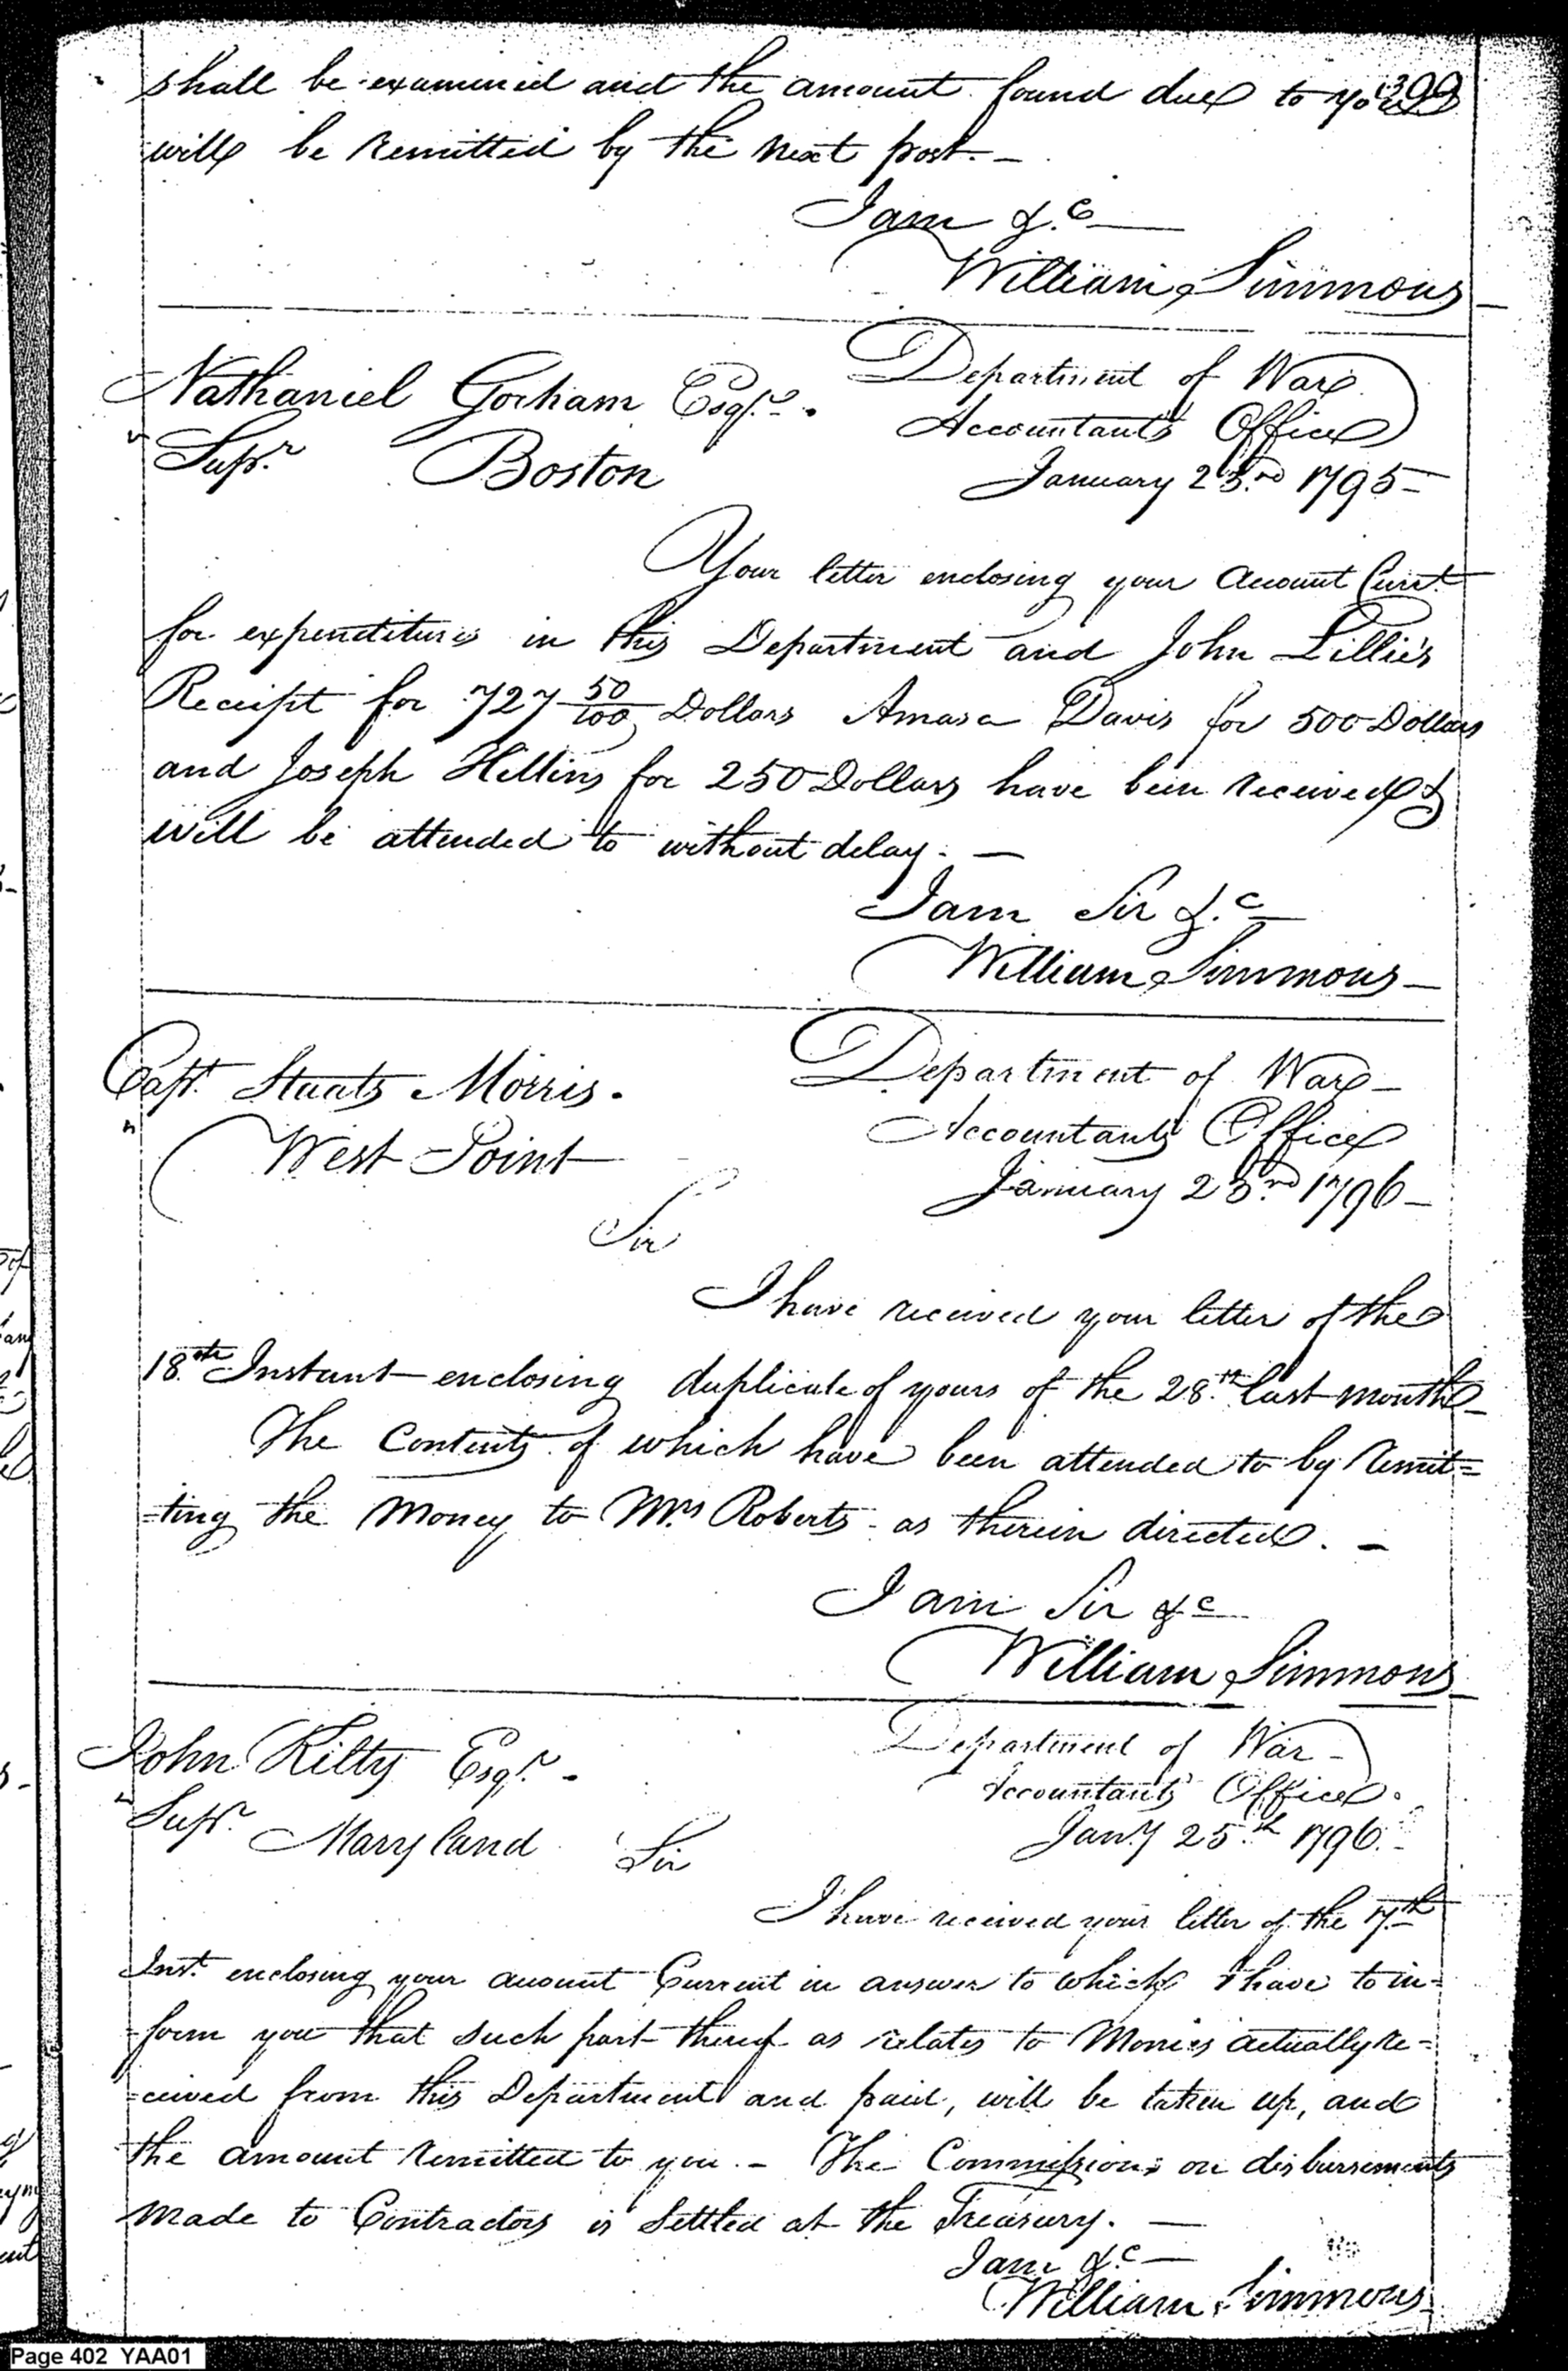 399
shall be examined and the amount found due to you
will be remitted by the next post. —
I am &.c —
William Simmons
Nathaniel Gorham Esqr.
Supr. Boston
Department of War
Accountants Office
January 23.rd 1795 —
Your letter enclosing your Account Curt.
for expenditures in this Department and John Lillie's
Receipt for 727 50/100 Dollars Amasa Davis for 500 Dollars
and Joseph for 250 Dollars have been received &
will be attended to without delay. —
I am Sir &.c —
William Simmons —
Capt. Staats Morris.
West Point
Department of War —
Accountants Office
January 23.rd 1796 —
Sir
I have received your letter of the
18.th Instant enclosing duplicate of yours of the 28.th last month —
The Contents of which have been attended to by remit=
=ting the Money to Mrs Roberts as therein directed. —
I am Sir &c
William Simmons
John Kilty Esqr. -
Supr. Maryland
Department of War -
Accountants Office.
Jany 25.th 1796. -
Sir
I have received your letter of the 17.th
Inst. enclosing your account Current in answer to which I have to in=
=form you that such part thereof as relates to Monies actually re=
=ceived from this Department and paid, will be taken up, and
the amount remitted to you. - The Commissions on disbursements
made to Contractors is settled at the Treasury. —
I am &.c —
William Simmons
Page 402 YAA01